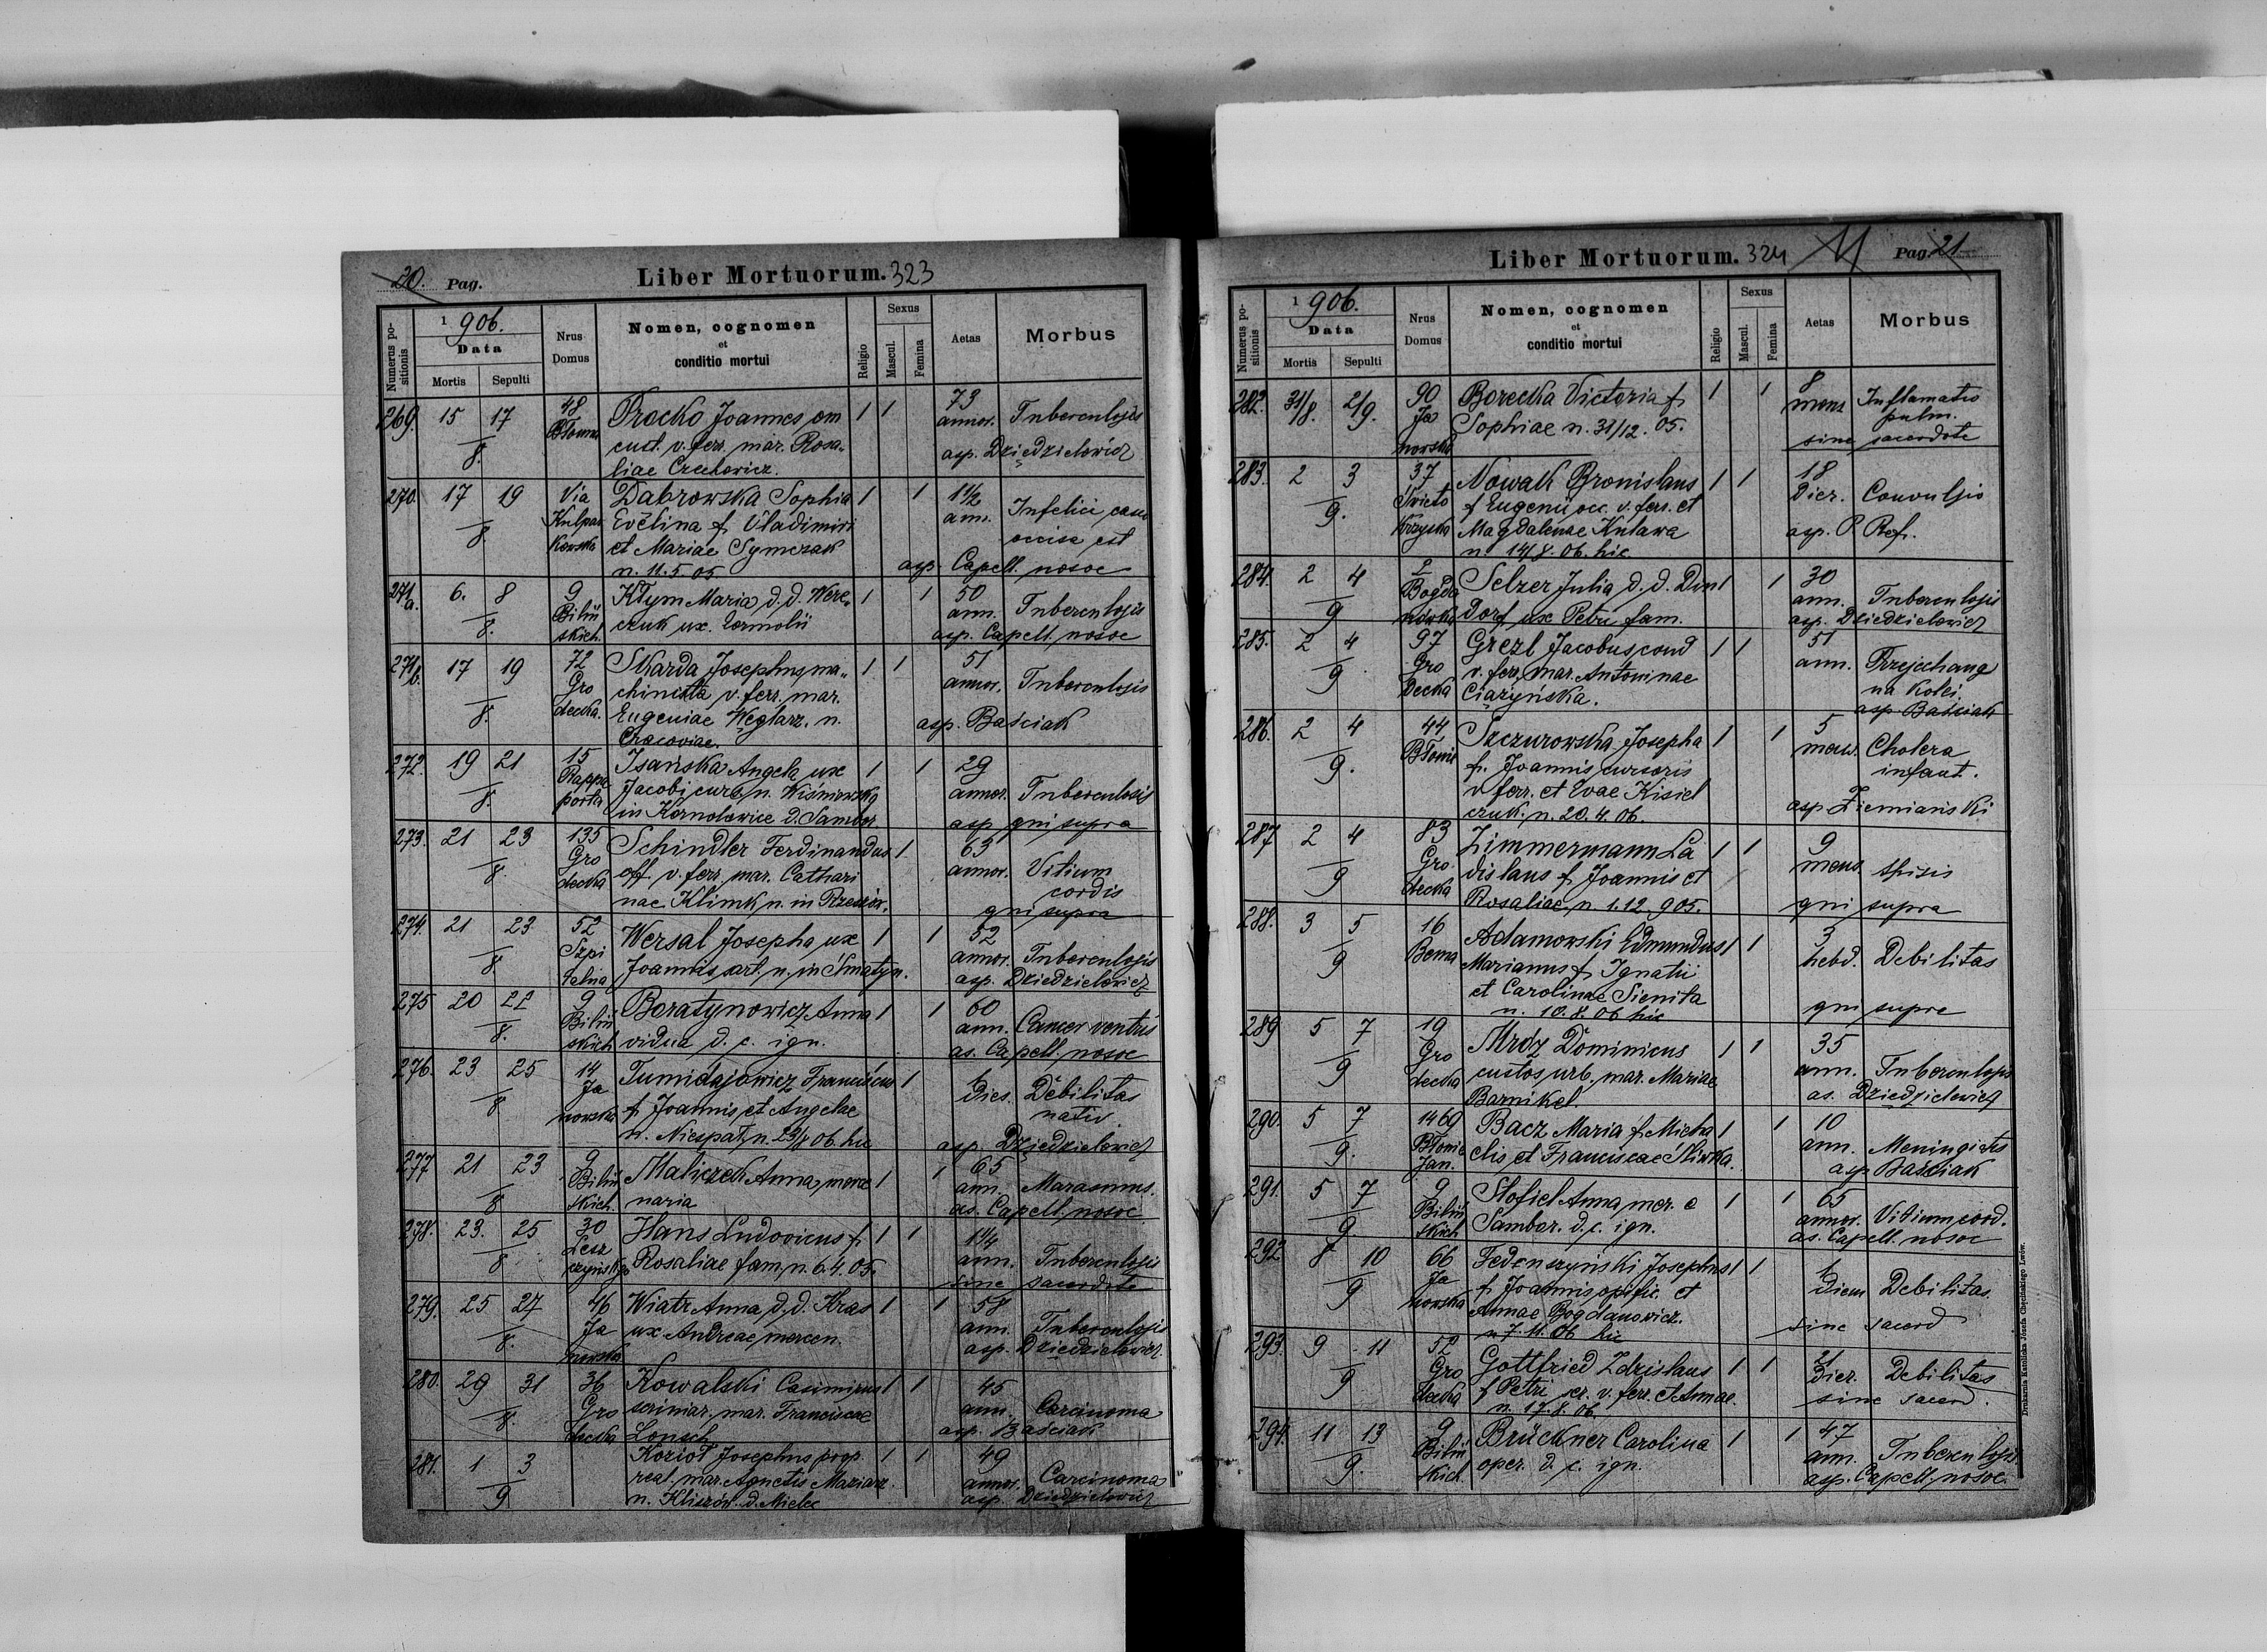 20. Pag. Liber Mortuorum. 323
Numerus positionis
1906.
Data
Mortis Sepulti
Nrus Domus
Nomen, cognomen
et
conditio mortui
Religio
Sexus
Mascul. Femina
Aetas
Morbus
269. 15 17 48 Procko Joannes om 1 1 73 Tuberculosis
8. Błonna cust. v. ferr. mar. Rosa- annor.
liae Czechowicz. asp. Dziędzielewicz
270. 17 19 Via Dąbrowska Sophia 1 1 1 1/2 Infelici casu
8. Kulpar Evelina f. Vladimiri ann. occisa est
kowska et Mariae Symczak
n. 11.5.05 asp. Capell. nosoc
271/a. 6. 8 9 Kłym Maria d. d. Were- 1 1 50 Tuberculosis
8. Biliń czuk ux. Ermolii ann.
skich asp. Capell. nosoc
271/b. 17 19 72 Skarda Josephus, ma- 1 1 51 Tuberculosis
8. Gro chinista v. ferr. mar. annor.
decka. Eugeniae Węglarz. n. asp. Baściak
Cracoviae.
272. 19 21 15 Isańska Angela ux 1 1 29 Tuberculosis
8. Rappa Jacobi curb. n. Wiśniowska annor.
porta in Kornolowice d. Sambor asp qui supra
273. 21 23 135 Schindler Ferdinandus 1 63 Vitium
8. Gro off v. ferr. mar. Cathari annor. cordis
decka nae Klimk, n. in Rzeszów. qui supra
274. 21 23 52 Wersal Josepha ux 1 1 52
8. Szpi Joannis art. n. in Śniatyn. annor. Tuberculosis
talna asp. Dziedzielewicz
275 20 22 9 Boratynowicz Anna 1 1 60
8. Biliń vidua d. c. ign. ann. Cancer ventris
skich as. Capell. nosoc
276. 23 25 14 Tumidajowicz Franciscus 1 1
8 Ja f. Joannis et Angelae Dies. Debilitas
nowska n. Niespał, n. 23/8 06. hic nativ
asp. Dziedzielewicz
277 21 23 9 Maliczek Anna, merce 1 1 65
8 Biliń naria ann. Marasmus.
skich. as. Capell. nosoc
278. 23. 25 30 Hans Ludovicus f. 1 1 1 1/4
8 Lesz Rosaliae fam. n. 6.4.05. ann. Tuberculosis
czyńskgo sine sacerdote
279. 25 27 46 Wiatr Anna d. d. Kras 1 1 58
8. Ja ux Andreae, mercen. ann. Tuberculosis
nowska asp. Dziedzielewicz
280. 29 31 36 Kowalski Casimirus 1 1 45
8. Gro scriniar. mar. Franciscae ann. Carcinoma
decka Lonsch asp. Baściak
281. 1 3 Kozioł Josephus prop. 1 1 49
9 real. mar. Agnetis Maziarz annor. Carcinoma
n. Kliszów. d. Mielec asp. Dziedzielewicz
Liber Mortuorum. 324 11 Pag. 21
Numerus positionis
1906.
Data
Mortis Sepulti
Nrus Domus
Nomen, cognomen
et
conditio mortui
Religio
Sexus
Mascul. Femina
Aetas
Morbus
282. 31/8. 2/9. 90 Borecka Victoria f. 1 1 8 Inflamatio
Ja Sophiae n. 31/12. 05. mens pulm.
nowska sine sacerdote
283. 2 3 37 Nowak Bronislaus 1 1 18
9. Święto f. Eugenii occ. v. ferr. et Dier. Convulsio
krzyska Magdalenae Kulawa asp. P Ref.
n. 14/8. 06. hic
284. 2 4 2 Selzer Julia d. d. Dun 1 1 30
9 Bogda dorf ux Petri fam. ann. Tuberculosis
nówka asp. Dziedzielewicz
285. 2 4 97 Grezl Jacobus cond 1 1 51
9 Gro v. ferr. mar. Antoninae ann. Przejechany
decka Ciązyńska. na kolei.
asp Baściak
286. 2 4 44 Szczurowska Josepha 1 1 5
9. Błonie f. Joannis cursoris mens. Cholera
v ferr. et Evae Kisiel infant.
czuk. n. 20.4.06. asp Ziemiański
287 2 4 83 Zimmermann La 1 1 9
9 Gro. dislaus f. Joannis et mens. thisis
decka Rosaliae, n. 1.12.905. qui supra
288. 3 5 16 Adamowski Edmundus 1 1 3
9 Bema Marianus f. Ignatii hebd. Debilitas
et Carolinae Sienita
n. 10.8.06 hic qui supra
289 5 7 19 Mróz Dominicus 1 1 35
9 Gro custos urb. mar. Mariae ann. Tuberculosis
decka Barnikel. as. Dziedzielewicz
290. 5 7 1469 Bacz Maria f. Micha 1 1 10
9. Błonie elis et Franciscae Śliwka. ann. Meningitis
Jan. asp Baściak
291. 5 7 9 Stofiel Anna, mer. e 1 1 65
9. Biliń Sambor. d. c. ign. annor. Vitium cord.
skich as. Capell. nosoc
292 8 10 66 Fedenszyński Josephus 1 1 1
9 Ja f. Joannis opific. et Diem Debilitas
nowska Annae Bogdanowicz.
n 7.11.06 hic sine sacerd
293. 9 11 52 Gottfried Zdzislaus 1 1 21
9 Gro f. Petri scr. v. ferr. et Annae Dier. Debilitas
decka n. 17.8.06. sine sacerd.
294. 11 13 9 Brückner Carolina 1 1 47
9. Biliń oper. d. c. ign. ann. Tuberculosis
skich asp. Capell. nosoc.
Drukarnia Katolicka Józefa Chęcińskiego Lwów.